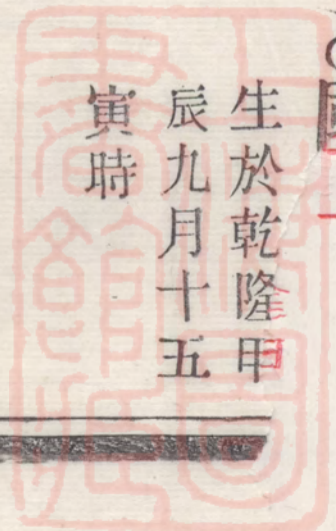 生於乾隆甲
辰九月十五
寅時